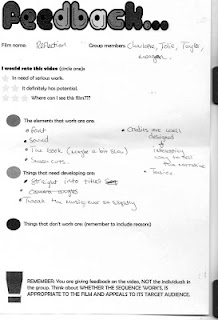 Feedback...
Film name: Reflection Group members: Charlotte, Jade, Tayla,
I would rate this video (circle one):
In need of serious work.
It definitely has potential.
Where can I see this film???
The elements that work are:
• Font
• Sound
• The book (maybe a bit slow)
• Smash cuts.
• Credits are well designed
• Interesting way to tell the narrative
• Titles.
Things that need developing are:
• Straight into titles
• Camera
• Tweak the music ever so slightly
Things that don't work are: (remember to include reasons)
REMEMBER: You are giving feedback on the video, NOT the individuals in
the group. Think about WHETHER THE SEQUENCE WORKS, IS
APPROPRIATE TO THE FILM AND APPEALS TO ITS TARGET AUDIENCE.